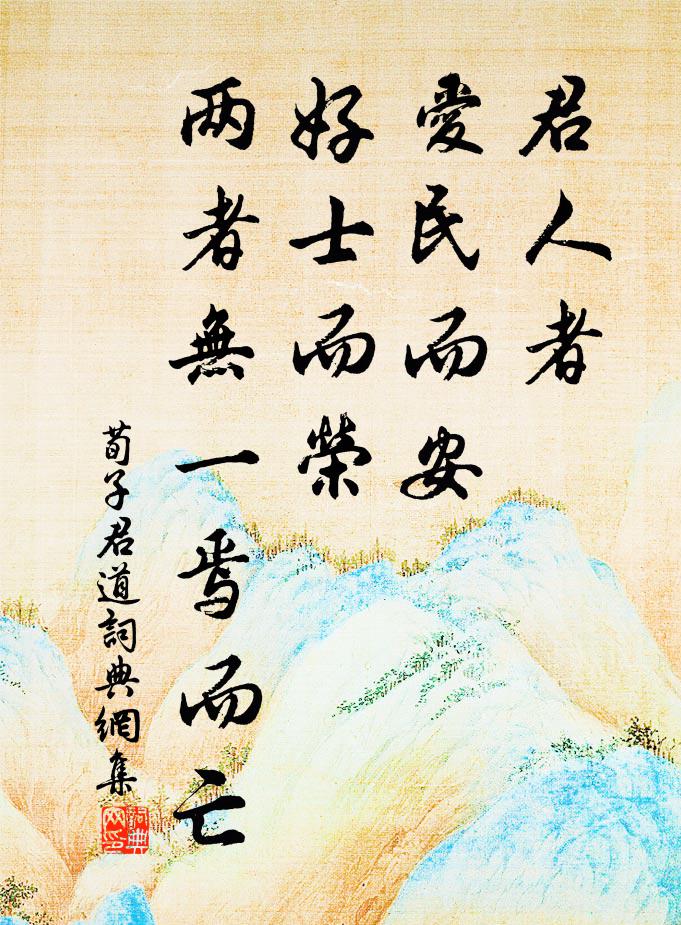 君人者
愛民而安
好士而榮
两者無一焉而亡
荀子君道詞典網集
詞典
网印